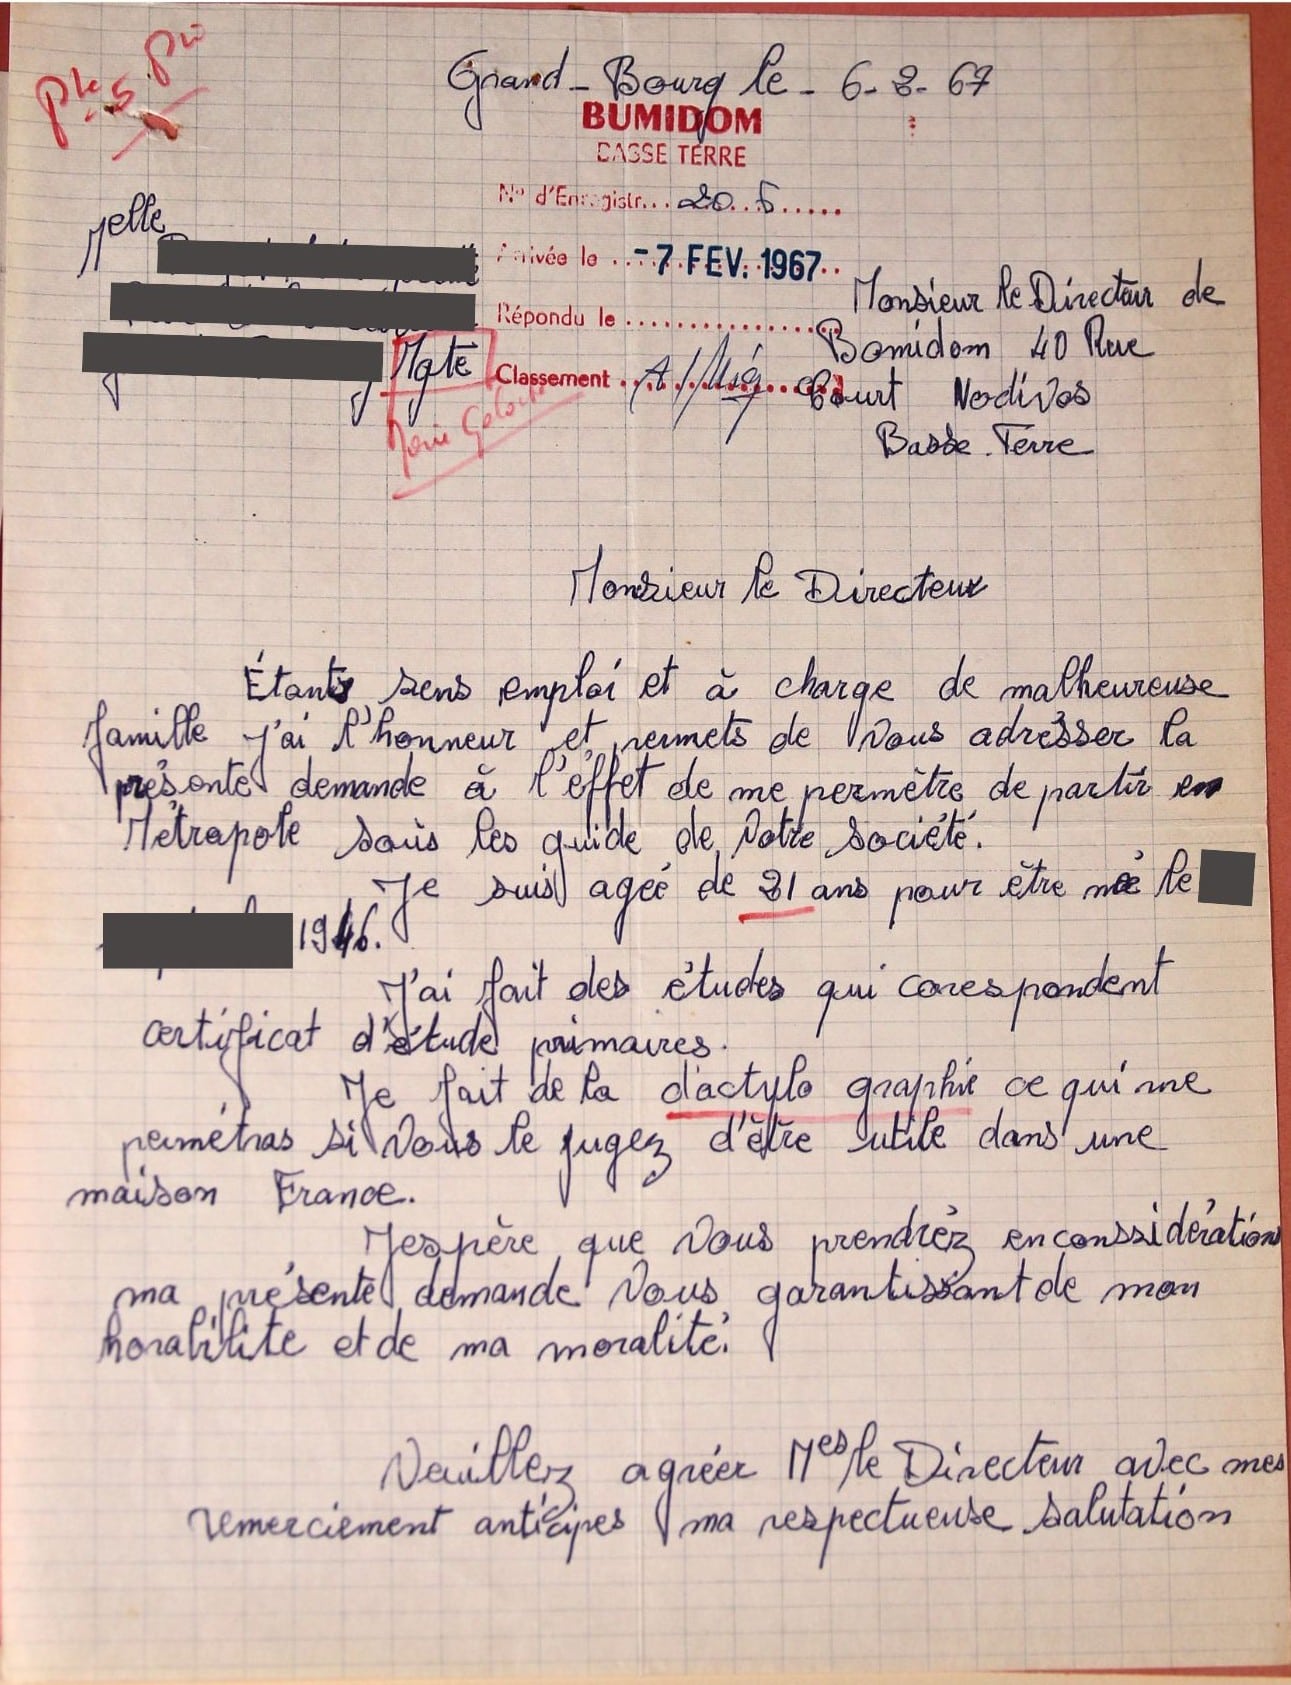 Grand-Bourg le - 6-2-67
BUMIDOM
BASSE TERRE
N° d'Enregistr... 20.5
Melle
Arrivée le ... -7 FEV. 1967
Monsieur le Directeur de
Répondu le
Bomidom 40 Rue
Mgte
Classement A/Mig
Court Nodivos
Basse-Terre
Monsieur le Directeur
Étants sens emploi et à charge de malheureuse
famille j'ai l'honneur et permets de vous adresser la
présente demande à l'éffet de me permètre de partir en
Métropole sous les guide de votre société.
Je suis ageé de 21 ans pour être née le
1946.
J'ai fait des études qui corespondent
certificat d'étude primaires.
Je fait de la dactylo graphie ce qui me
permétras si vous le jugez d'être utile dans une
maison France.
J'espère que vous prendrèz en conssidération
ma présente demande vous garantissant de mon
horabilité et de ma moralité.
Veuillez agréer Mes le Directeur avec mes
remerciement anticipes ma respectueuse salutation